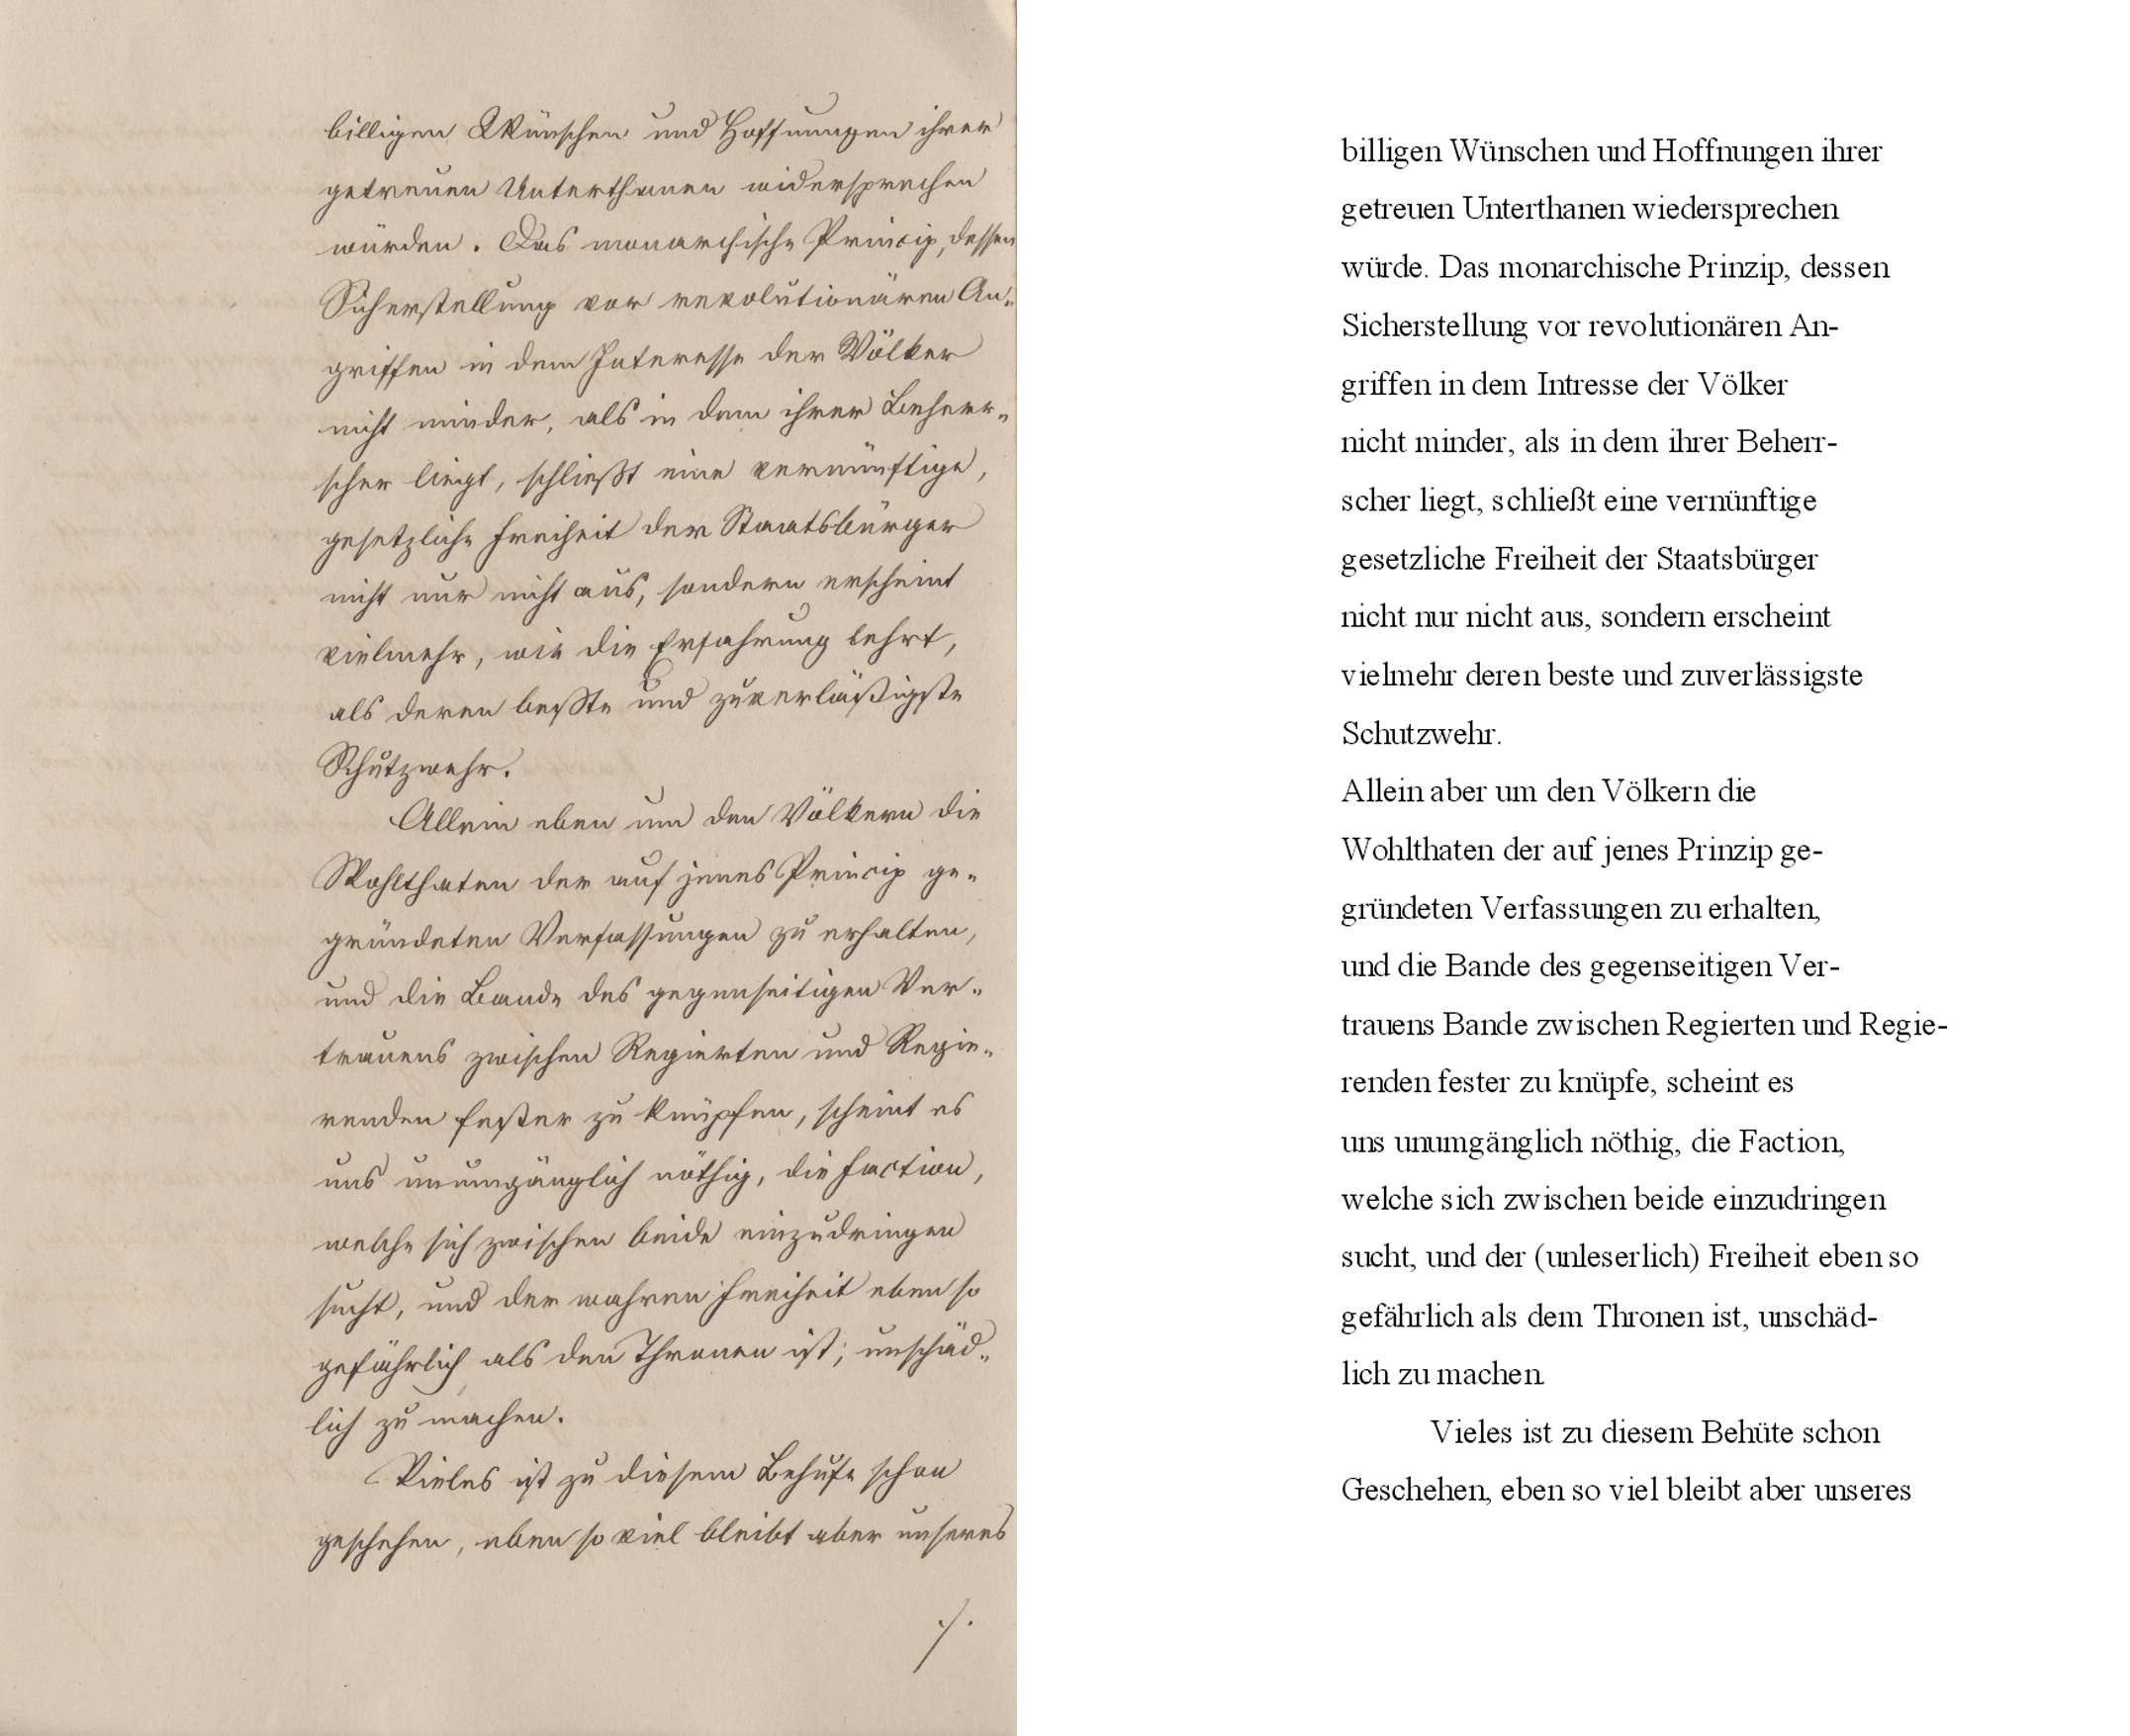 billigen Wünschen und Hoffnungen ihrer
getreuen Unterthanen widersprechen
würden. Das monarchische Princip, dessen
Sicherstellung vor revolutionären An-
griffen in dem Interesse der Völker
nicht minder, als in dem ihrer Beherr-
scher liegt, schließt eine vernünftige,
gesetzliche Freiheit der Staatsbürger
nicht nur nicht aus, sondern erscheint
vielmehr, wie die Erfahrung lehrt,
als deren beßte und zuverläßigste
Schutzwehr.
Allein eben um den Völkern die
Wohlthaten der auf jenes Princip ge-
gründeten Verfassungen zu erhalten,
und die Bande des gegenseitigen Ver-
trauens zwischen Regierten und Regie-
renden fester zu knüpfen, scheint es
uns unumgänglich nöthig, die Faction,
welche sich zwischen beide einzudringen
sucht, und der wahren Freiheit eben so
gefährlich als den Thronen ist; unschäd-
lich zu machen.
Vieles ist zu diesem Behufe schon
geschehen, eben so viel bleibt aber unseres
./.
billigen Wünschen und Hoffnungen ihrer
getreuen Unterthanen wiedersprechen
würde. Das monarchische Prinzip, dessen
Sicherstellung vor revolutionären An-
griffen in dem Intresse der Völker
nicht minder, als in dem ihrer Beherr-
scher liegt, schließt eine vernünftige
gesetzliche Freiheit der Staatsbürger
nicht nur nicht aus, sondern erscheint
vielmehr deren beste und zuverlässigste
Schutzwehr.
Allein aber um den Völkern die
Wohlthaten der auf jenes Prinzip ge-
gründeten Verfassungen zu erhalten,
und die Bande des gegenseitigen Ver-
trauens Bande zwischen Regierten und Regie-
renden fester zu knüpfe, scheint es
uns unumgänglich nöthig, die Faction,
welche sich zwischen beide einzudringen
sucht, und der (unleserlich) Freiheit eben so
gefährlich als dem Thronen ist, unschäd-
lich zu machen.
Vieles ist zu diesem Behüte schon
Geschehen, eben so viel bleibt aber unseres